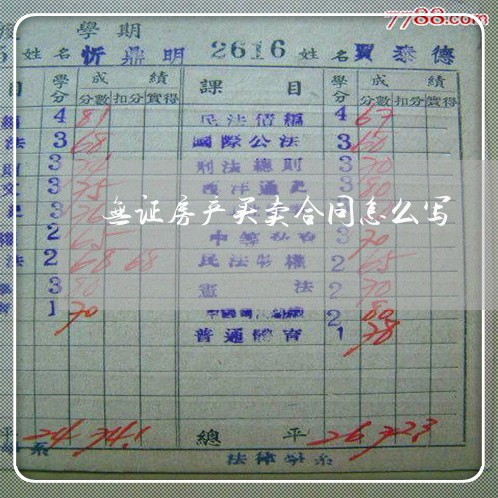 7788.com
學期
姓名 忻鼎明 2616 姓名 賈泰德
目 學分 成績 課目 學分 成績
分數 扣分 實得 分數 扣分 實得
4 81 民法債編 4 67
法 3 68 國際公法 3 60
3 刑法總則 3 70
文 3 75 西洋通史 3 80
3 76 3
無证房产买卖合同怎么写
權 2 65 3 70
法 2 68 68 民法物權 2 65
3 80 憲法 2 70
育 1 70 2 80
普通體育 1 78
平 24 74.1 總平 26 72.3
系 法律學系